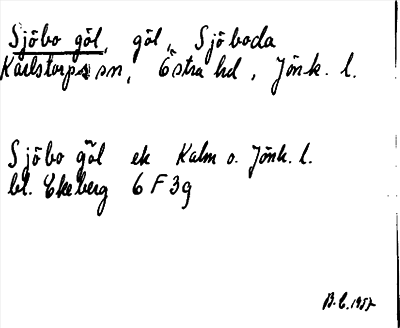 Sjöbo göl, göl, Sjöboda
Karlstorps sn, Östra hd, Jönk. l.
Sjöbo göl ek Kalm o. Jönk. l.
bl. Ekeberg 6 F 3g
B. C. 1957